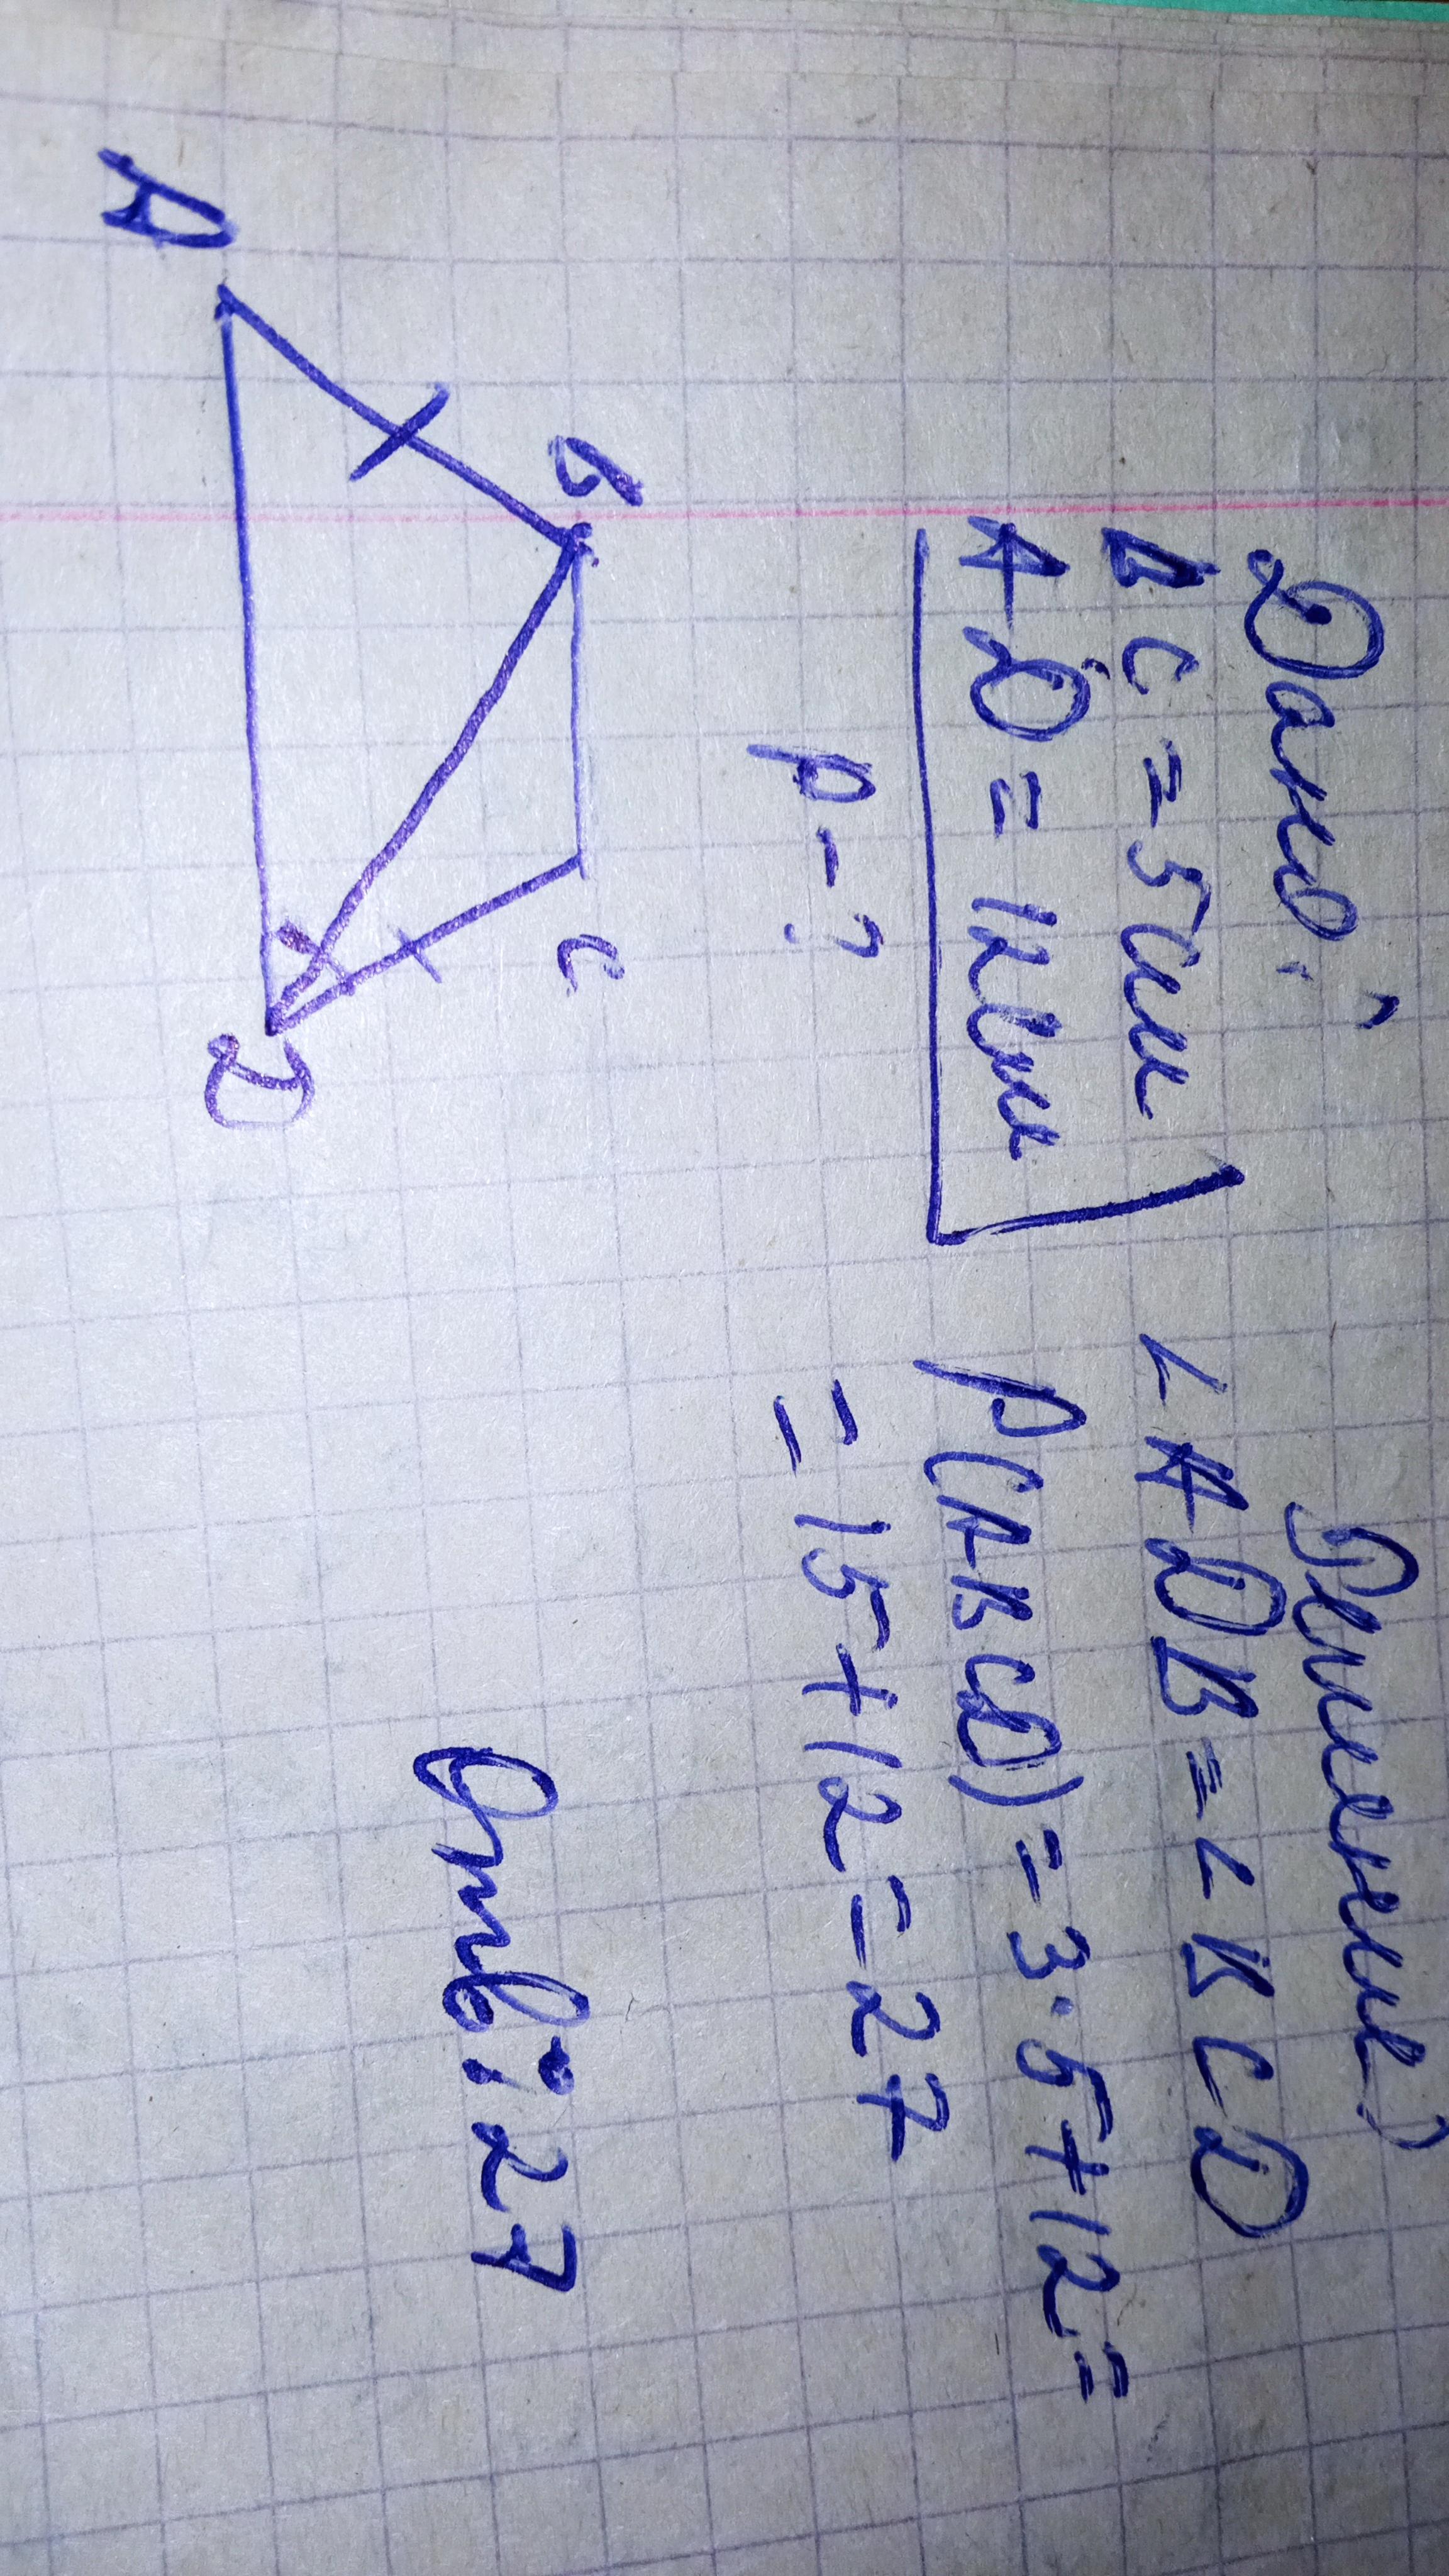 Дано:
BC = 5 см
AD = 12 см
P - ?
A
B
C
D
Решение)
∠ADB = ∠BCD
P(ABCD) = 3·5+12=
= 15+12 = 27
Ответ: 27